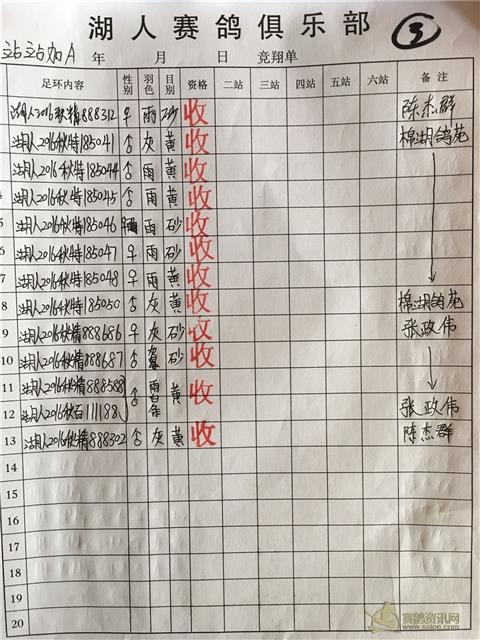 湖人赛鸽俱乐部 ③
站站加A 年 月 日 竞翔单
足环内容 性别 羽色 目别 资格 二站 三站 四站 五站 六站 备注
湖人2016秋精888312 ♀ 雨 砂 收 陈杰群
湖人2016秋特185041 ♂ 灰 黄 收 棉湖鸽苑
湖人2016秋特185044 ♂ 雨 黄 收
4 湖人2016秋特185045 ♂ 雨 黄 收
5 湖人2016秋特185046 ♀ 雨 砂 收
6 湖人2016秋特185047 ♀ 雨 砂 收
7 湖人2016秋特185048 ♀ 雨 黄 收
8 湖人2016秋特185050 ♂ 灰 黄 收 棉湖鸽苑
9 湖人2016秋精888686 ♀ 灰 砂 收 张政伟
10 湖人2016秋精888687 ♂ 砂 收
11 湖人2016秋精888588 ♂ 雨白条 黄 收
12 湖人2016秋白111188 张政伟
13 湖人2016秋精888302 ♂ 灰 黄 收 陈杰群
14
15
16
17
18
19
20
赛鸽资讯网
www.saige.com